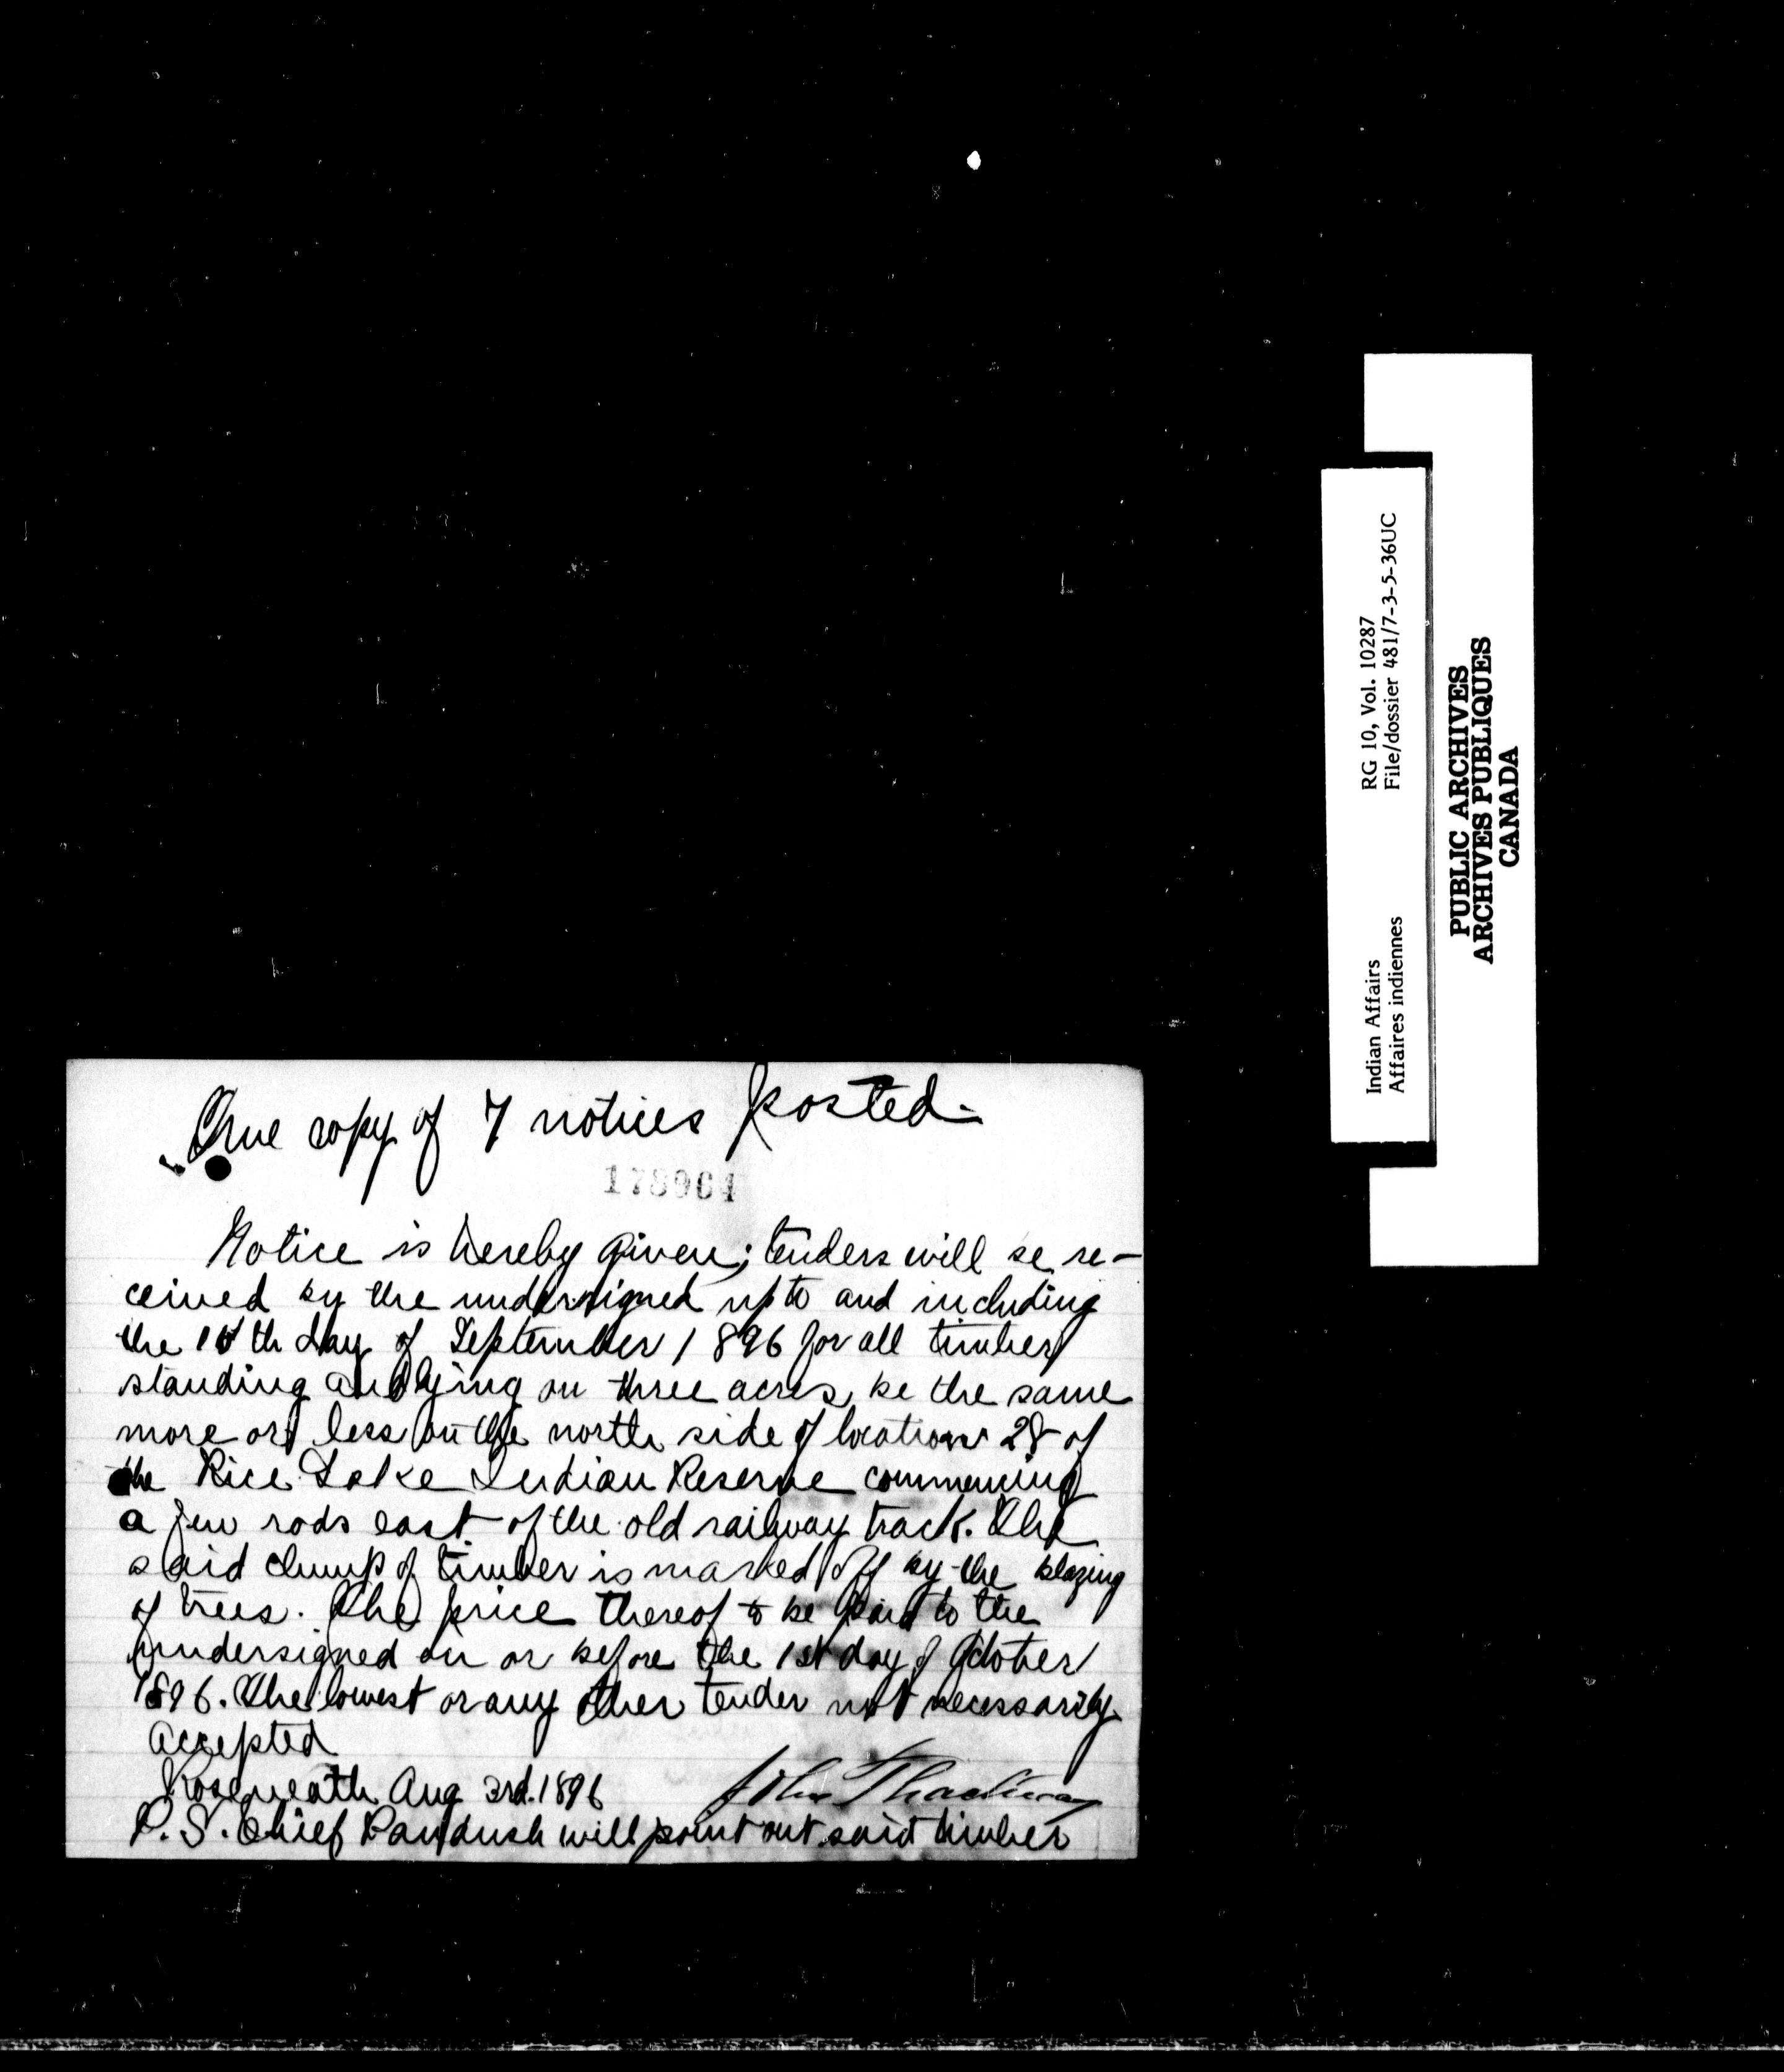 True copy of 7 notices posted.
178964
Notice is hereby given; tenders will be re-
ceived by the undersigned up to and including
the 10th day of September 1896 for all timber
standing and lying on three acres, be the same
more or less on the north side of location 28 of
the Rice Lake Indian Reserve commencing
a few rods east of the old railway track. The
said clump of timber is marked off by the blazing
of trees. The price thereof to be paid to the
undersigned on or before the 1st day of October
1896. The lowest or any other tender not necessarily
accepted
Roseneath Aug 3rd. 1896 John Thackeray
P.S. Chief Paudush will point out said timber
Indian Affairs RG 10, Vol. 10287
Affaires indiennes File/dossier 481/7-3-5-36UC
PUBLIC ARCHIVES
ARCHIVES PUBLIQUES
CANADA